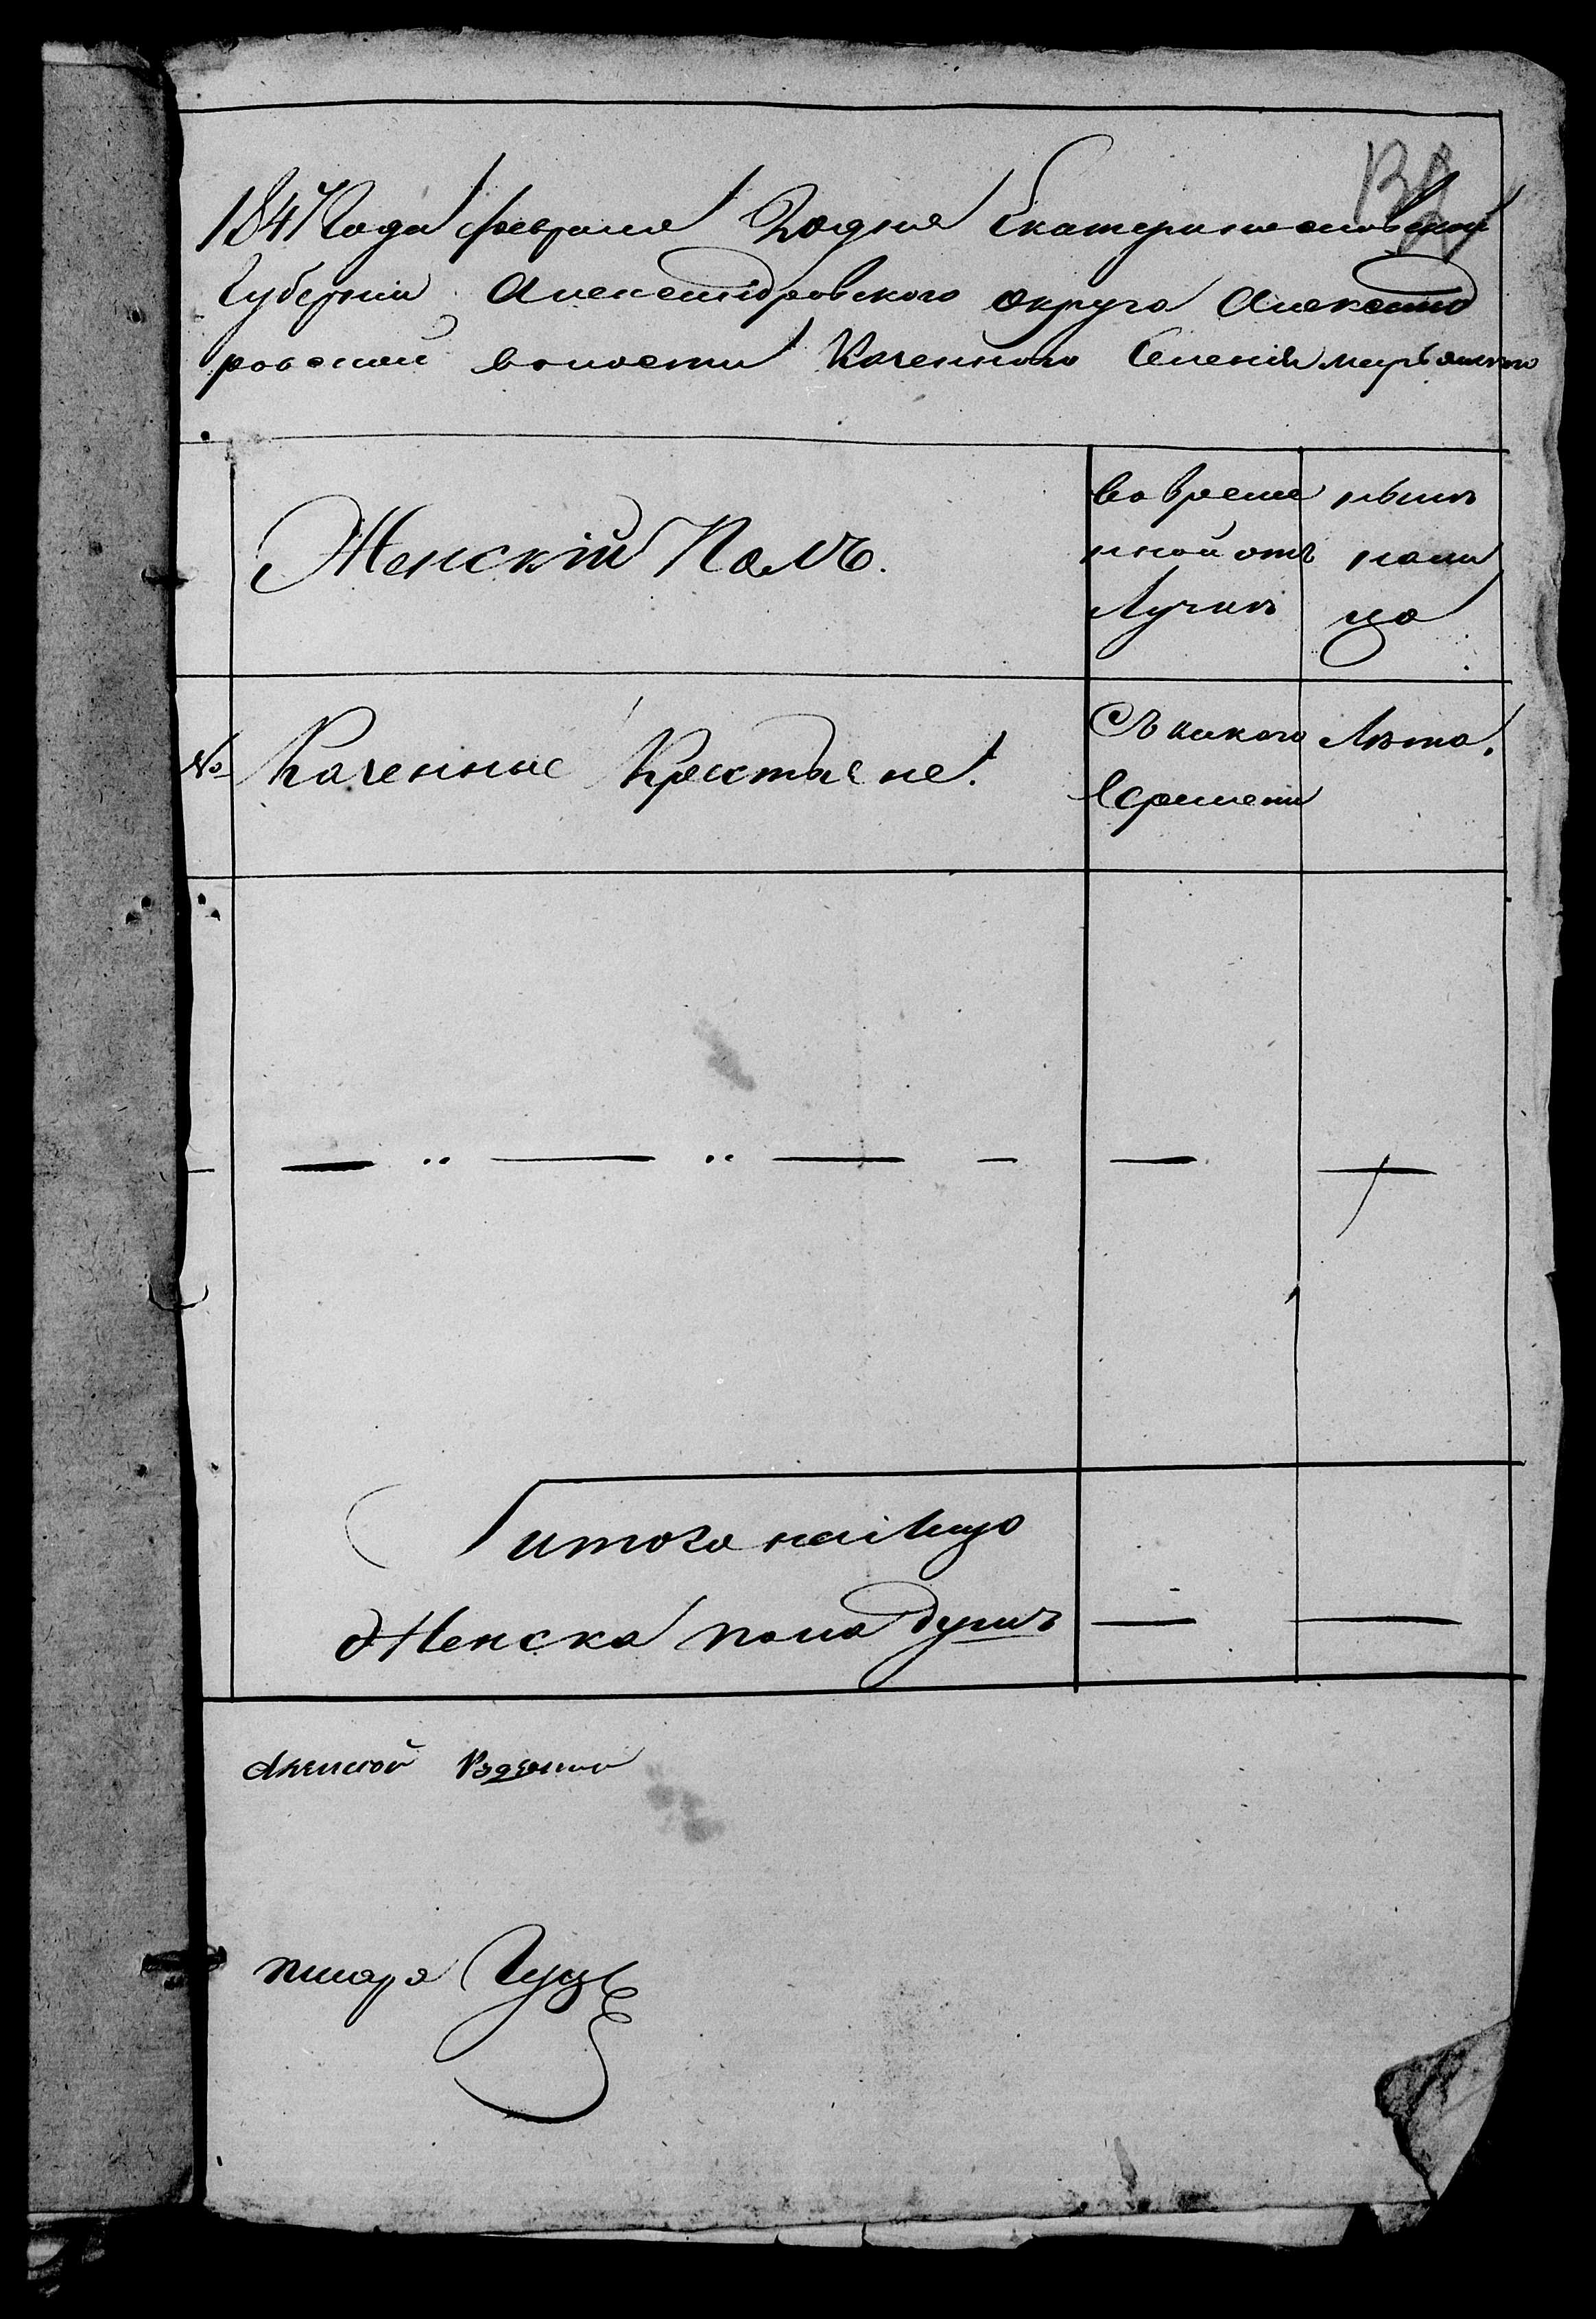 1847 Года февраля 2 о дня Екатеринославской
Губернии Александровского округа Александ
ровской волости Казенного Селения
Женскій Полъ.
во времен
ной отъ
лучкѣ
нынѣ
нали
цо
№ Казенные Крестьяне.
Съ какого
времени
Лета.
Итого налицо
Женска пола душъ
писарь